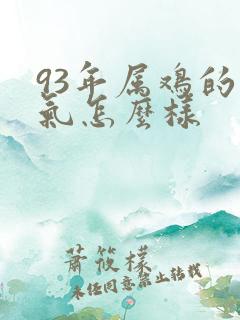 93年属鸡的
氣怎麼樣
蕭筱檬
未任同意禁止转载